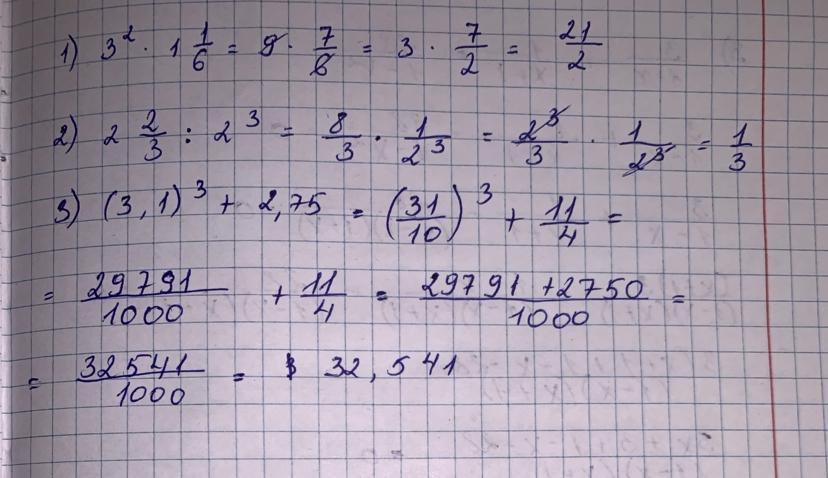 1) 3² · 1 1/6 = 9 · 7/6 = 3 · 7/2 = 21/2
2) 2 2/3 : 2³ = 8/3 · 1/2³ = 2³/3 · 1/2³ = 1/3
3) (3,1)³ + 2,75 = (31/10)³ + 11/4 =
= 29791/1000 + 11/4 = 29791 + 2750/1000 =
= 32541/1000 = 32,541